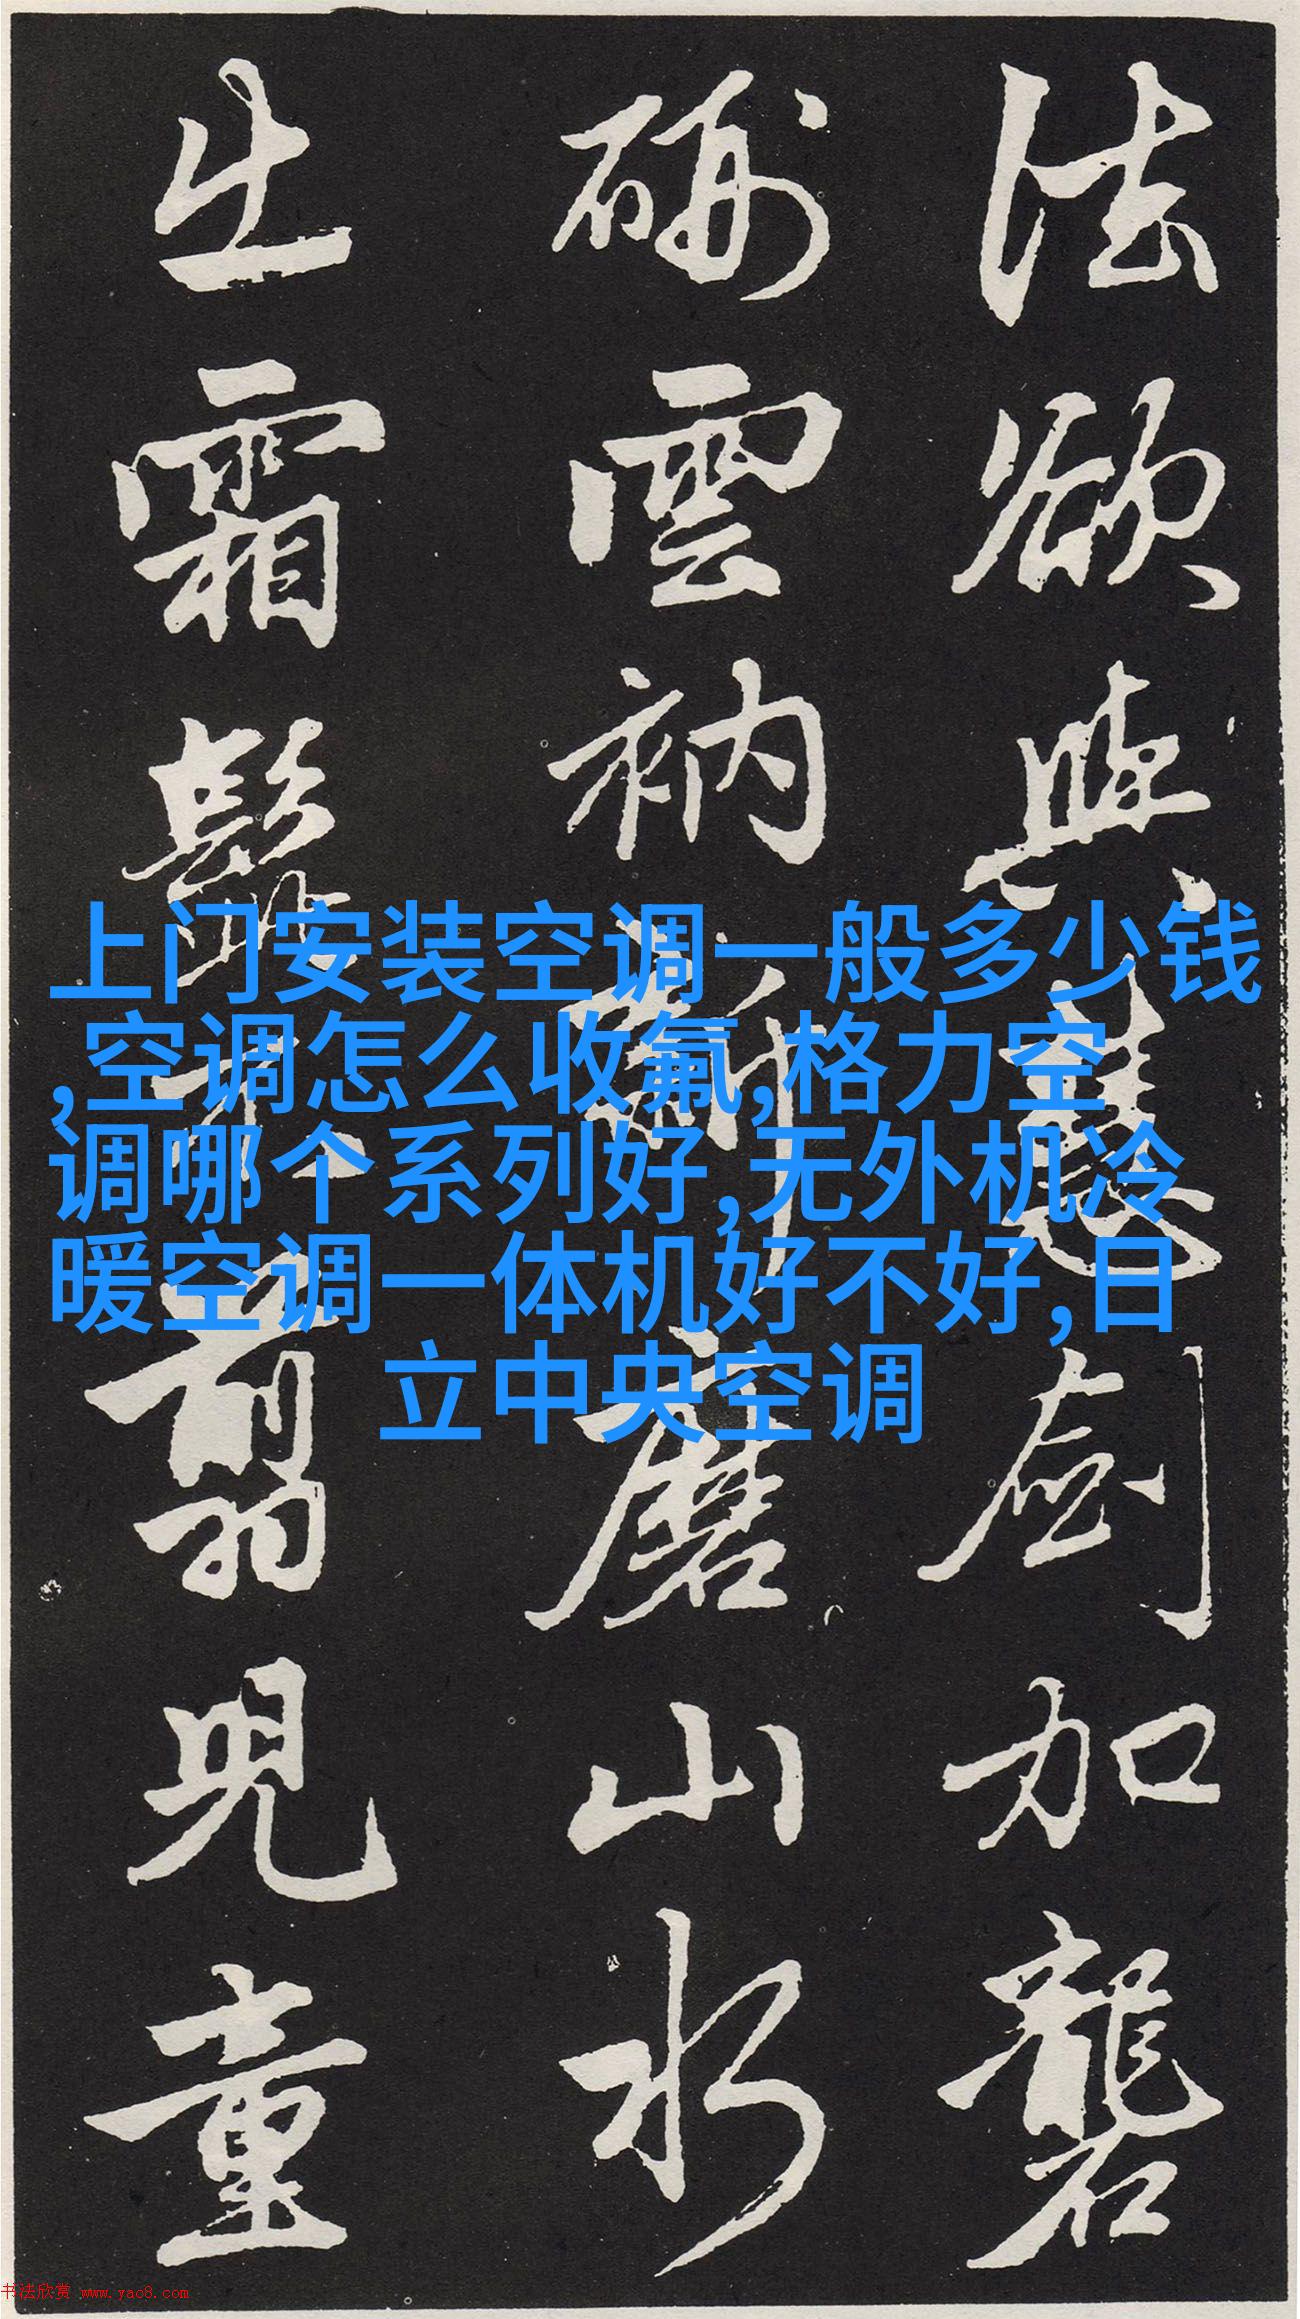 法欲與慧劍加礱
硎雲衲新磨山水
出霜髭不翦兒童
上门安装空调一般多少钱
,空调怎么收氟,格力空
调哪个系列好,无外机冷
暖空调一体机好不好,日
立中央空调
书法欣赏 www.yac8.com